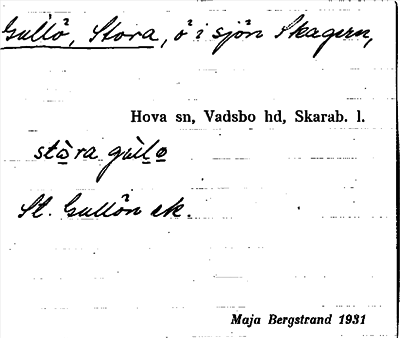 Gullö, Stora, ö i sjön Skagern,
Hova sn, Vadsbo hd, Skarab. l.
St. Gullön ek.
Maja Bergstrand 1931